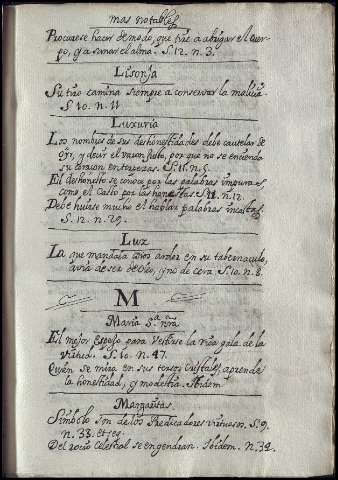 mas notables
Procurese hacer de modo, que trae a abrigar el Cuer-
po, y a sanar el alma. S. 12. n. 3.
Lisonja
Su trato camina siempre a conservar la malicia.
S. 10. n. 11
Luxuria
Los nombres de sus deshonestidades debe cautelar de
oyr, y decir el varon justo, por que no se encienda
su corazon en torpezas. S. 11. n. 5.
El deshonesto se conoce por las palabras impuras,
como el Casto por las honestas. S. 12. n. 12.
Debe huirse mucho el hablar palabras incastas.
S. 12. n. 29.
Lux
La que mandaba Dios arder en su tabernaculo,
avia de ser de Oleo, y no de cera. S. 10. n. 8.
M
Maria Sª. nrã.
El mejor Espejo para Verse la rica gala de la
virtud. S. 10. n. 47.
Quien se mira en sus tersos Cristales, aprende
la honestidad, y modestia. Ibidem.
Margaritas.
Simbolo son de los Predicadores virtuosos. S. 9.
n. 33. et seq.
Del rocio Celestial se engendran. Ibidem. n. 34.